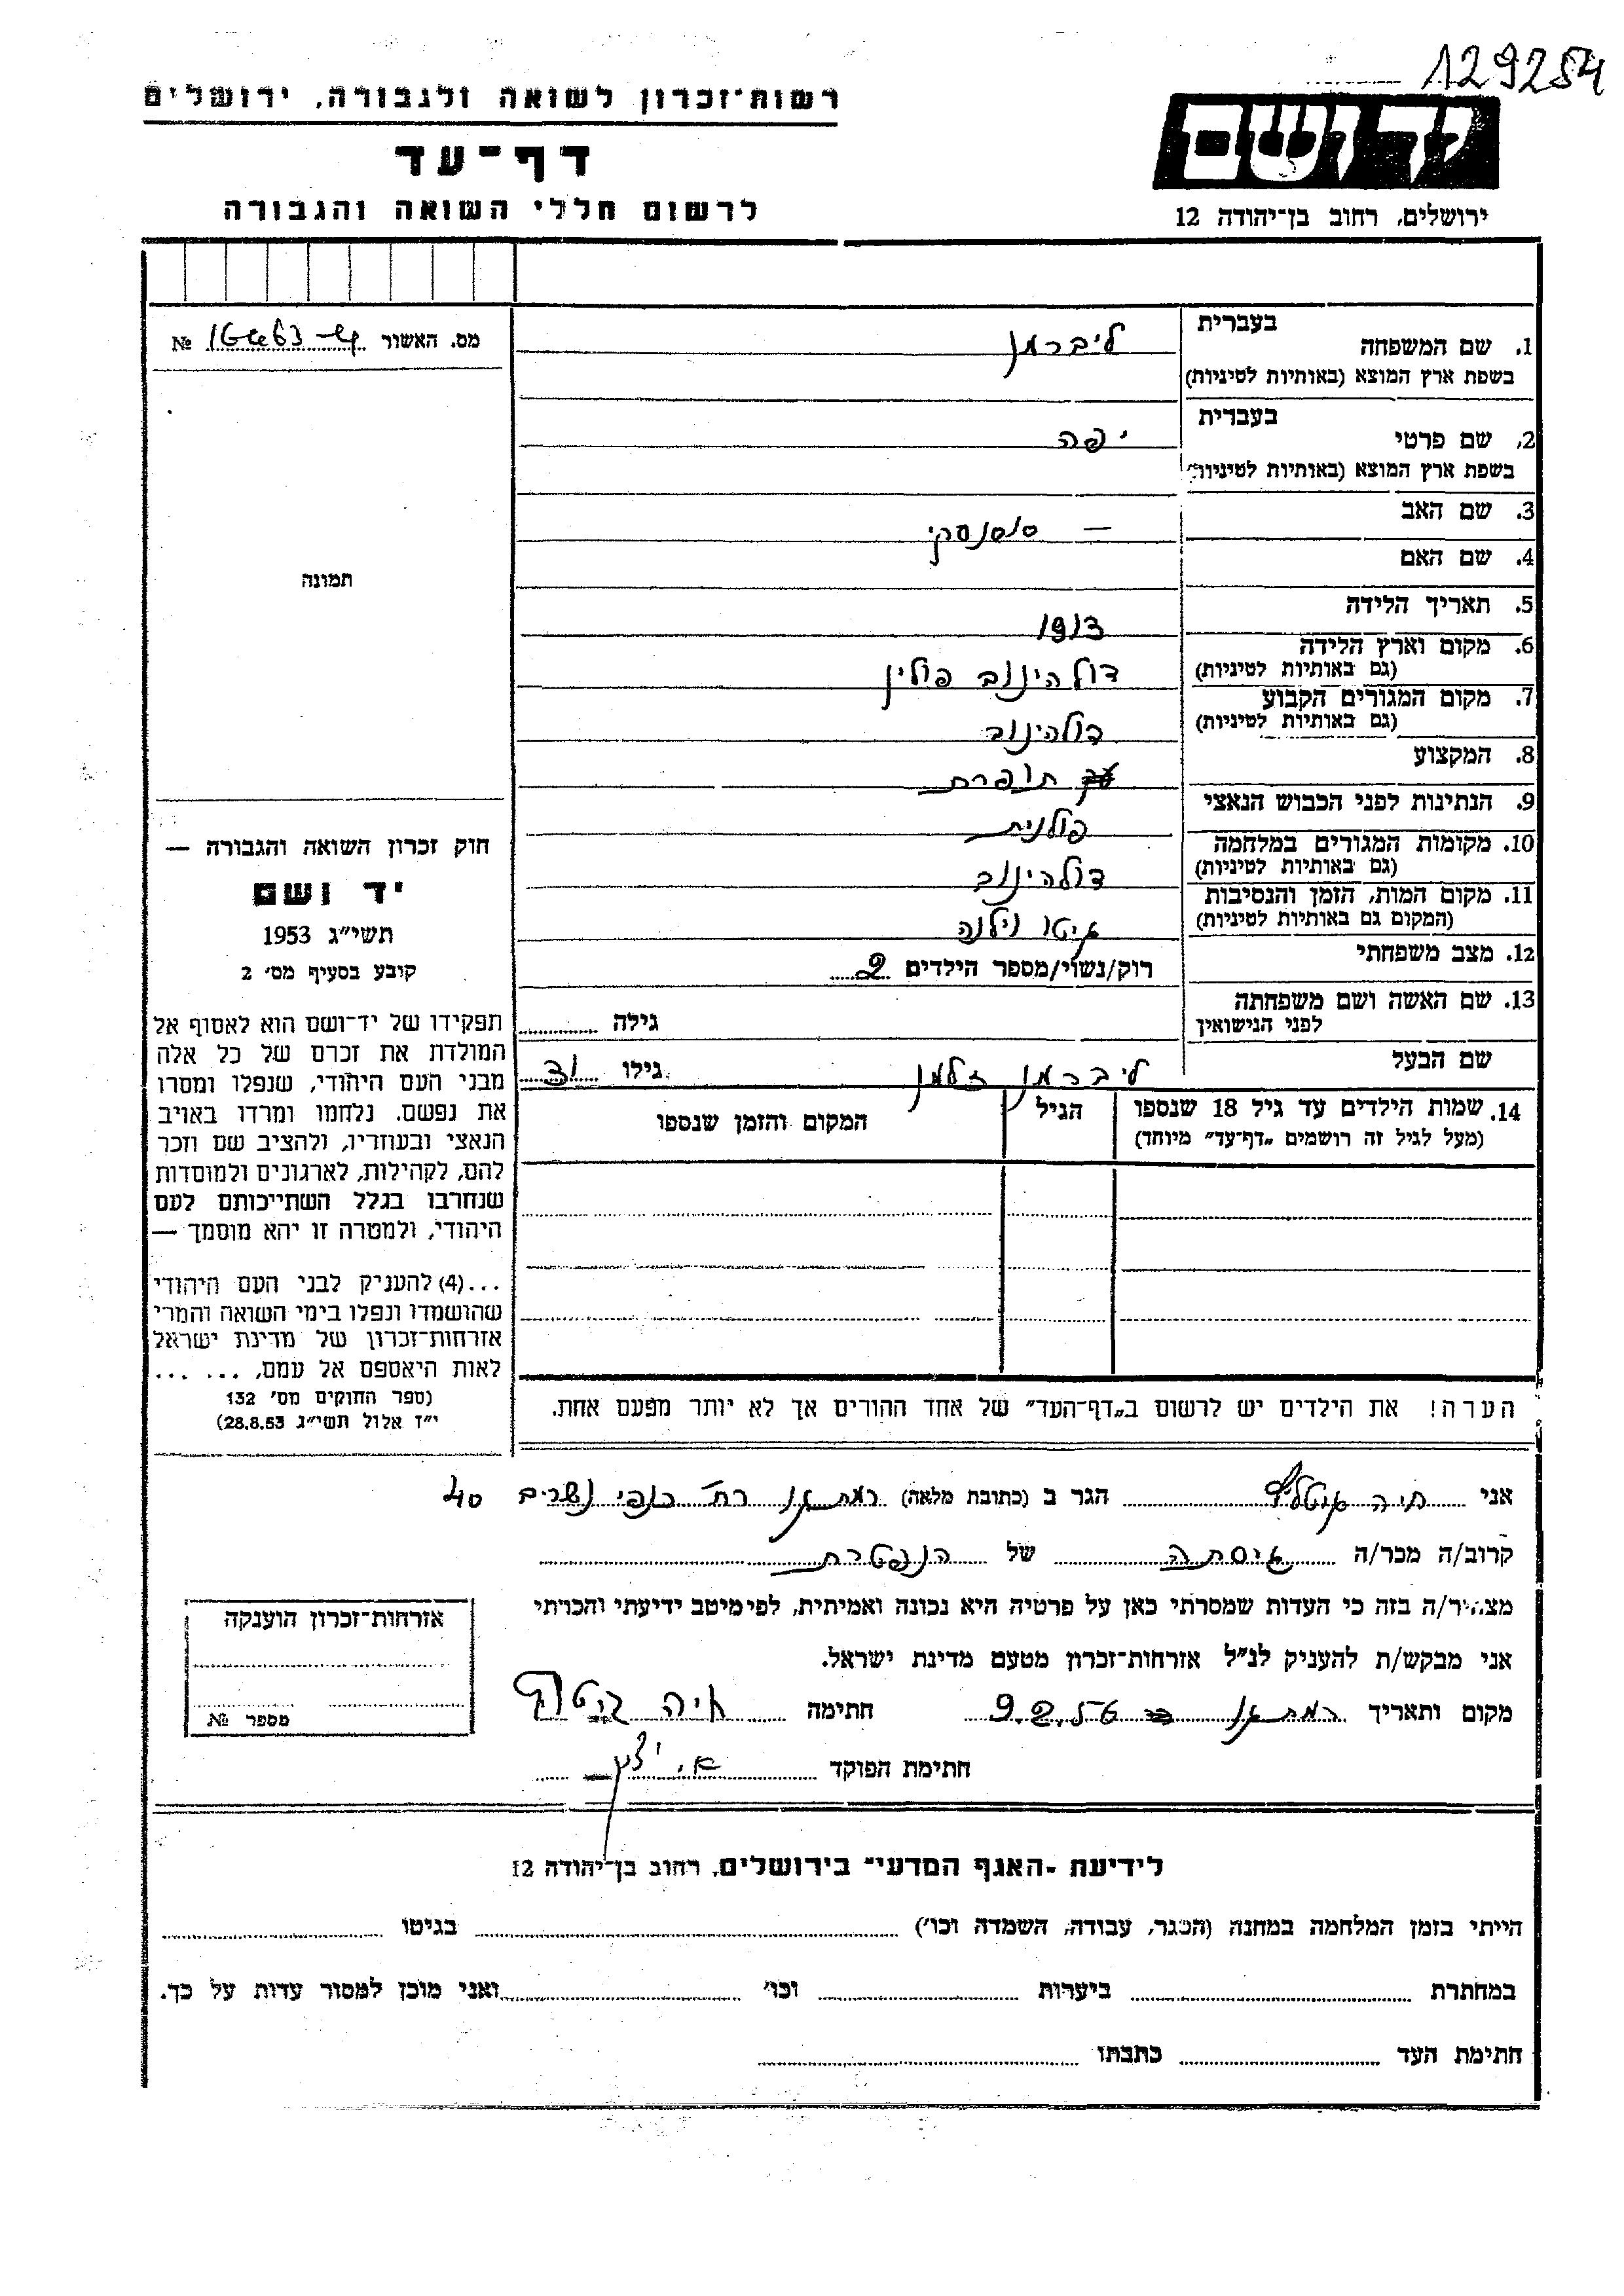 129254
רשות־זכרון לשואה ולגבורה, ירושלים
יד ושם
דף־עד
לרשום חללי השואה והגבורה
ירושלים, רחוב בן־יהודה 12
מס. האשור №
בעברית
1. שם המשפחה ליברמן
בשפת ארץ המוצא (באותיות לטיניות)
בעברית
2. שם פרטי יפה
בשפת ארץ המוצא (באותיות לטיניות)
3. שם האב —
4. שם האם
5. תאריך הלידה 1913
6. מקום וארץ הלידה דולהינוב פולין
(גם באותיות לטיניות)
7. מקום המגורים הקבוע דולהינוב
(גם באותיות לטיניות)
8. המקצוע תופרת
9. הנתינות לפני הכבוש הנאצי פולנית
10. מקומות המגורים במלחמה דולהינוב
(גם באותיות לטיניות)
11. מקום המות, הזמן והנסיבות גיטו וילנה
(המקום גם באותיות לטיניות)
12. מצב משפחתי רוק/נשוי/מספר הילדים 2
13. שם האשה ושם משפחתה גילה
לפני הנישואין
שם הבעל ליברמן זלמן גילו
14. שמות הילדים עד גיל 18 שנספו הגיל המקום והזמן שנספו
(מעל לגיל זה רושמים „דף־עד” מיוחד)
הערה! את הילדים יש לרשום ב„דף־העד” של אחד ההורים אך לא יותר מפעם אחת.
תמונה
חוק זכרון השואה והגבורה —
יד ושם
תשי״ג 1953
קובע בסעיף מס׳ 2
תפקידו של יד־ושם הוא לאסוף אל
המולדת את זכרם של כל אלה
מבני העם היהודי, שנפלו ומסרו
את נפשם. נלחמו ומרדו באויב
הנאצי ובעוזריו, ולהציב שם וזכר
להם, לקהילות, לארגונים ולמוסדות
שנחרבו בגלל השתייכותם לעם
היהודי, ולמטרה זו יהא מוסמך —
...(4) להעניק לבני העם היהודי
שהושמדו ונפלו בימי השואה והמרי
אזרחות־זכרון של מדינת ישראל
לאות היאספם אל עמם, ... ...
(ספר החוקים מס׳ 132
י״ז אלול תשי״ג 28.8.53)
אני חיה הגר ב (כתובת מלאה) רמת גן רח׳ כנפי נשרים 40
קרוב/ה מכר/ה גיסתה של הנפטרת
מצהיר/ה בזה כי העדות שמסרתי כאן על פרטיה היא נכונה ואמיתית, לפי מיטב ידיעתי והכרתי
אני מבקש/ת להעניק לנ״ל אזרחות־זכרון מטעם מדינת ישראל.
מקום ותאריך רמת גן חתימה חיה
חתימת הפוקד
אזרחות־זכרון הוענקה
מספר №
לידיעת „האגף המדעי” בירושלים, רחוב בן־יהודה 12
הייתי בזמן המלחמה במחנה (הסגר, עבודה, השמדה וכו׳) בגיטו
במחתרת ביערות וכו׳ ואני מוכן למסור עדות על כך.
חתימת העד כתבתו